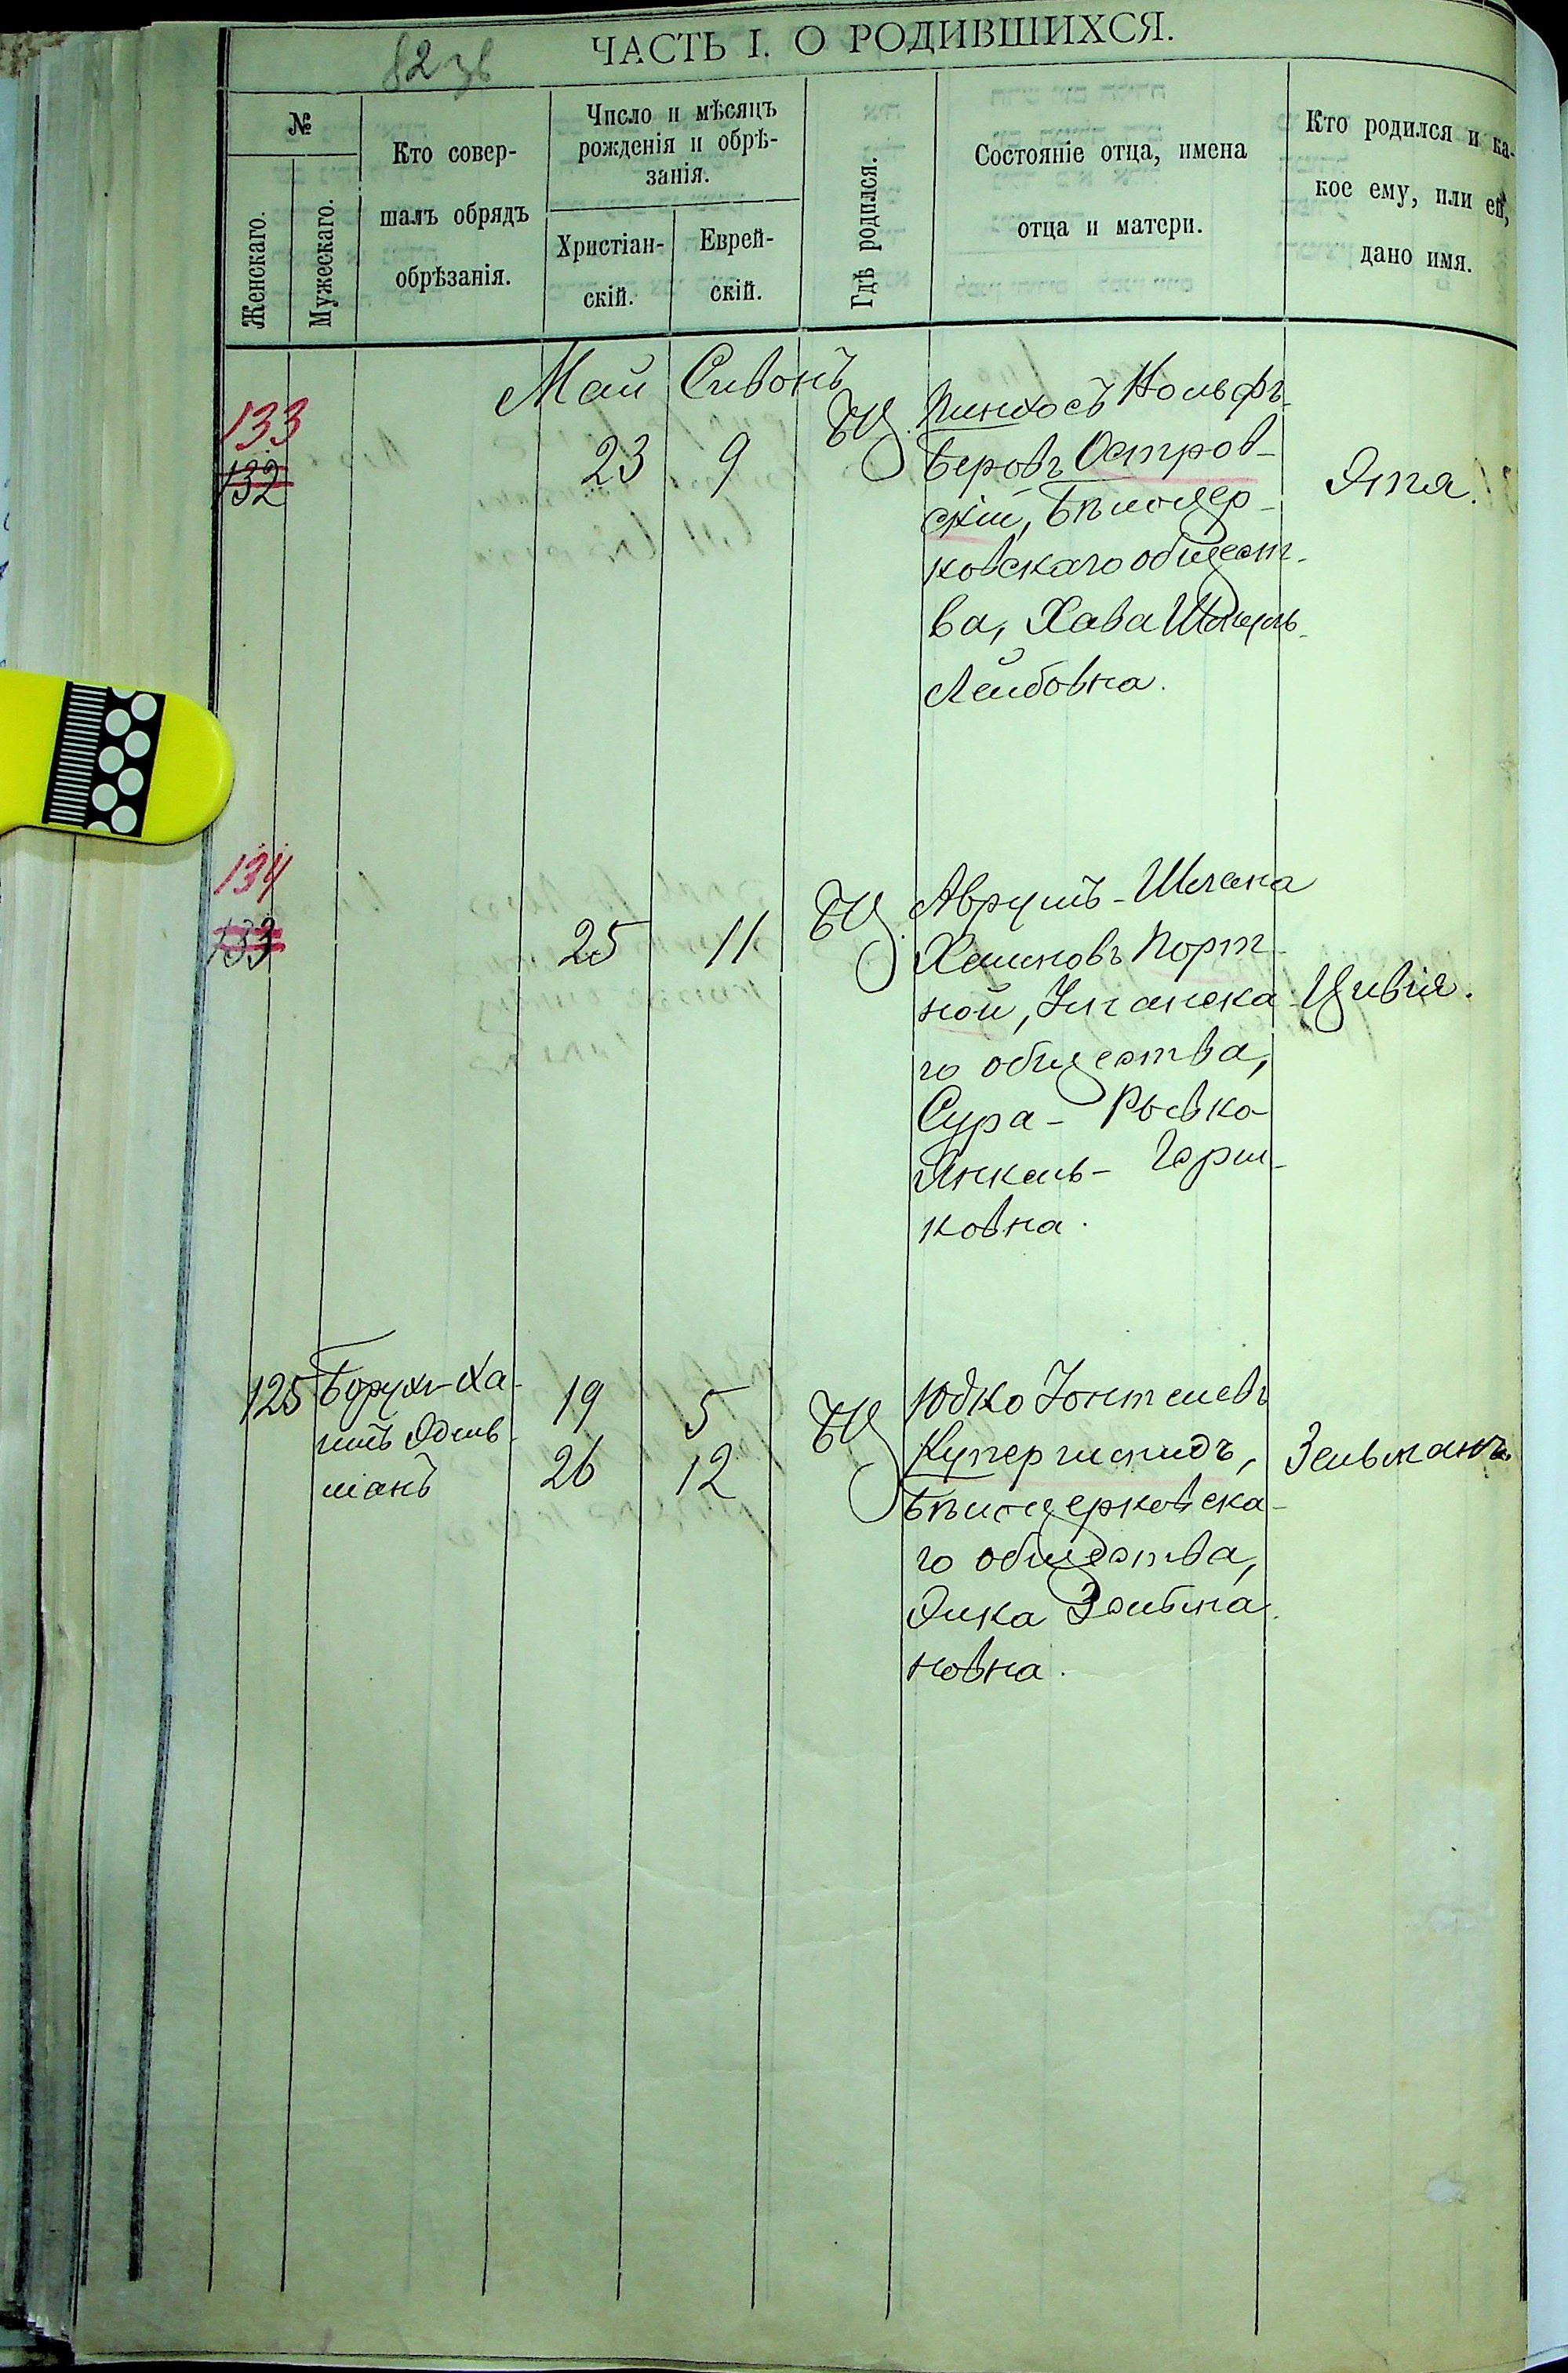 ЧАСТЬ I. О РОДИВШИХСЯ.
82
№
Женскаго.
Мужескаго.
Кто совер-
шалъ обрядъ
обрѣзанія.
Число и мѣсяцъ
рожденія и обрѣ-
занія.
Христіан-
скій.
Еврей-
скій.
Гдѣ родился.
Состояніе отца, имена
отца и матери.
Кто родился и ка-
кое ему, или ей,
дано имя.
Май Сивонъ
133
132
23 9
БЦ
Пинхосъ Вольфъ-
Беровъ Остров-
скій, Бѣлоцер-
ковскаго общест-
ва, Хава
Лейбовна.
Этя.
134
133
25 11
БЦ
Аврумъ-Шлема
Хаимовъ Порт-
ной, Уманска
го общества,
Сура-Рывка
Янкель-Герш-
ковна.
Цивія.
125
Борухъ-Ха-
имъ Эдель-
манъ
19 5
26 12
БЦ
Юдко Іонтелевъ
Купершмидъ,
Бѣлоцерковска-
го общества,
Элка Зельма-
новна.
Зельманъ